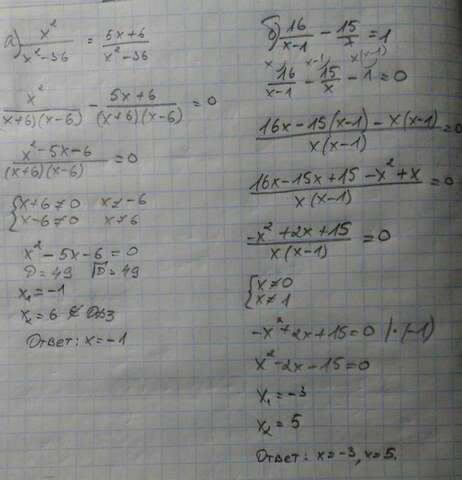 а) x²/(x²-36) = (5x+6)/(x²-36)
x²/((x+6)(x-6)) - (5x+6)/((x+6)(x-6)) = 0
(x²-5x-6)/((x+6)(x-6)) = 0
{x+6≠0 x≠-6
x-6≠0 x≠6
x²-5x-6=0
D=49 √D=49
x₁=-1
x₂=6 ∉ ОДЗ
Ответ: x=-1
б) 16/(x-1) - 15/x = 1
x x-1 x(x-1)
16/(x-1) - 15/x - 1 = 0
(16x-15(x-1)-x(x-1))/(x(x-1)) = 0
(16x-15x+15-x²+x)/(x(x-1)) = 0
(-x²+2x+15)/(x(x-1)) = 0
{x≠0
x≠1
-x²+2x+15=0 |·(-1)
x²-2x-15=0
x₁=-3
x₂=5
Ответ: x=-3, x=5.